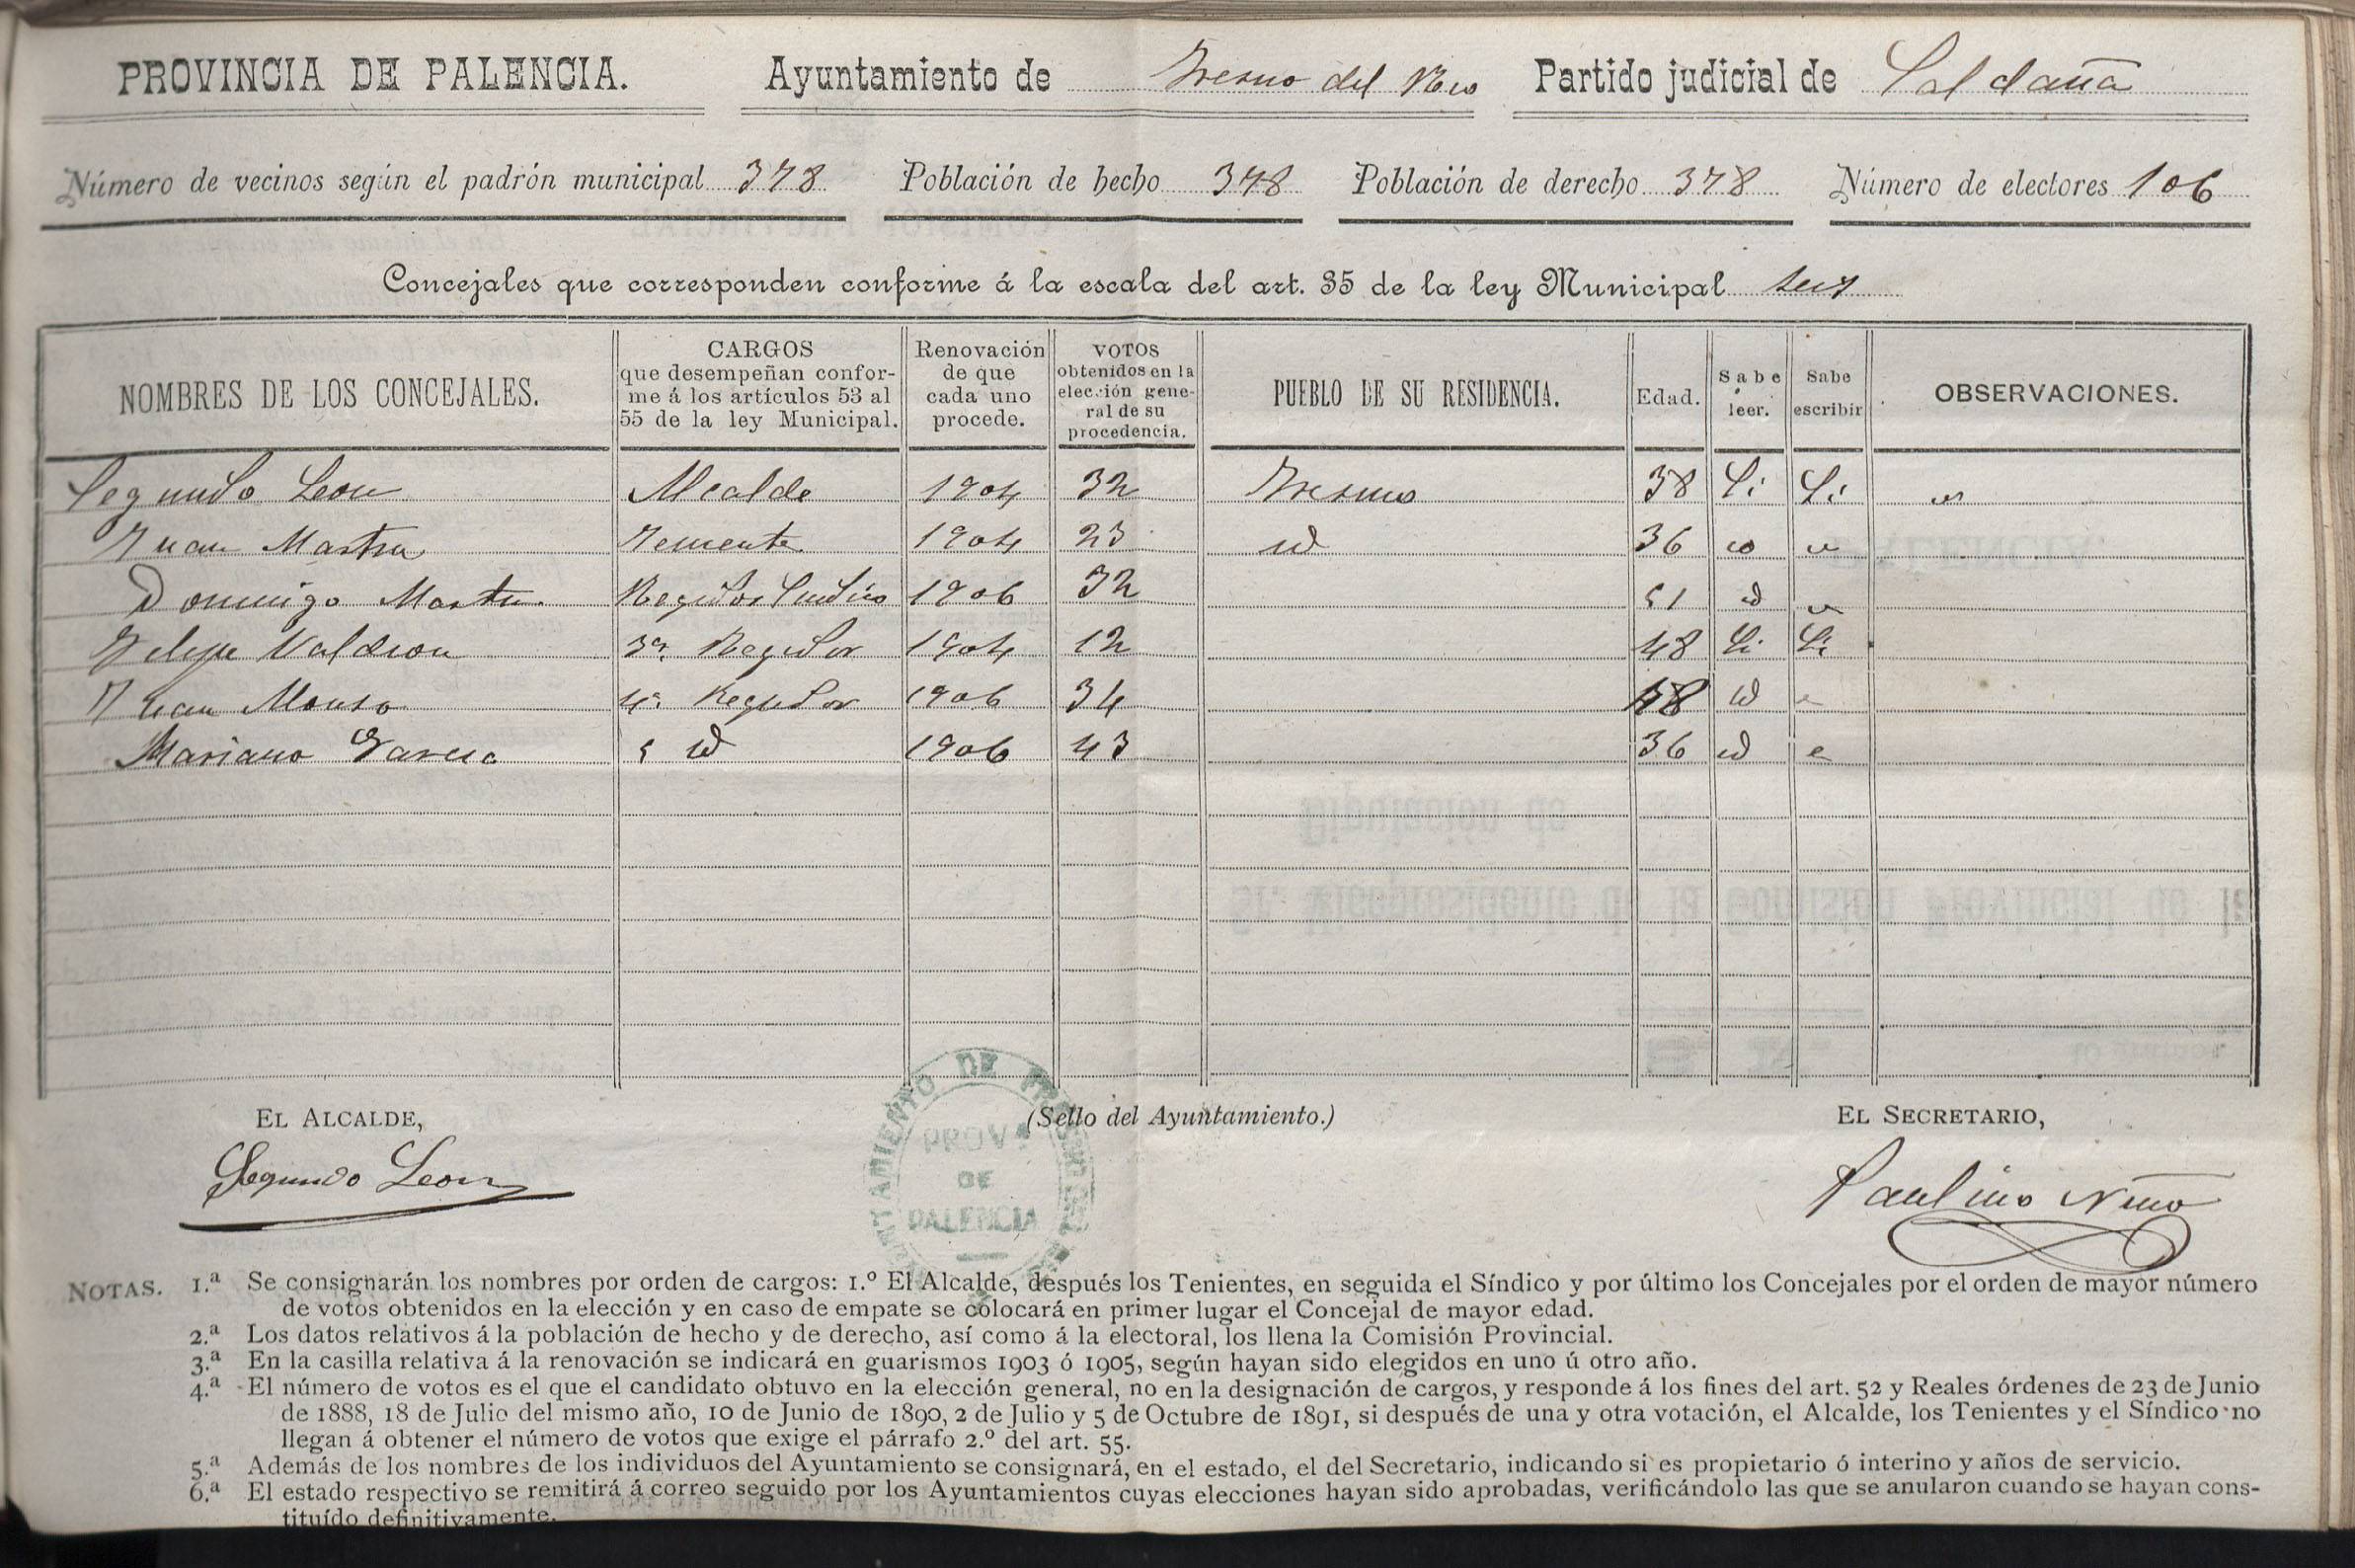 PROVINCIA DE PALENCIA. Ayuntamiento de Fresno del Rio Partido judicial de Saldaña
Número de vecinos según el padrón municipal 378 Población de hecho 378 Población de derecho 378 Número de electores 106
Concejales que corresponden conforme á la escala del art. 35 de la ley Municipal seis
NOMBRES DE LOS CONCEJALES.
CARGOS
que desempeñan confor-
me á los artículos 53 al
55 de la ley Municipal.
Renovación
de que
cada uno
procede.
VOTOS
obtenidos en la
elección gene-
ral de su
procedencia.
PUEBLO DE SU RESIDENCIA.
Edad.
Sabe
leer.
Sabe
escribir
OBSERVACIONES.
Segundo Leon Alcalde 1904 32 Fresno 38 Si Si
Juan Martin Teniente 1904 23 id 36 id
Domingo Martin Regidor Sindico 1906 32 51 id
Felipe Valdeon 3º Regidor 1904 12 48 Si Si
Juan Alonso 4º Regidor 1906 34 48 id
Mariano Garcia 5 id 1906 43 36 id
EL ALCALDE, (Sello del Ayuntamiento.) EL SECRETARIO,
Segundo Leon
Paulino Nino
AYUNTAMIENTO DE FRESNO DEL RIO
PROVA
DE
PALENCIA
NOTAS. 1.ª Se consignarán los nombres por orden de cargos: 1.º El Alcalde, después los Tenientes, en seguida el Síndico y por último los Concejales por el orden de mayor número
de votos obtenidos en la elección y en caso de empate se colocará en primer lugar el Concejal de mayor edad.
2.ª Los datos relativos á la población de hecho y de derecho, así como á la electoral, los llena la Comisión Provincial.
3.ª En la casilla relativa á la renovación se indicará en guarismos 1903 ó 1905, según hayan sido elegidos en uno ú otro año.
4.ª El número de votos es el que el candidato obtuvo en la elección general, no en la designación de cargos, y responde á los fines del art. 52 y Reales órdenes de 23 de Junio
de 1888, 18 de Julio del mismo año, 10 de Junio de 1890, 2 de Julio y 5 de Octubre de 1891, si después de una y otra votación, el Alcalde, los Tenientes y el Síndico no
llegan á obtener el número de votos que exige el párrafo 2.º del art. 55.
5.ª Además de los nombres de los individuos del Ayuntamiento se consignará, en el estado, el del Secretario, indicando si es propietario ó interino y años de servicio.
6.ª El estado respectivo se remitirá á correo seguido por los Ayuntamientos cuyas elecciones hayan sido aprobadas, verificándolo las que se anularon cuando se hayan cons-
tituído definitivamente.